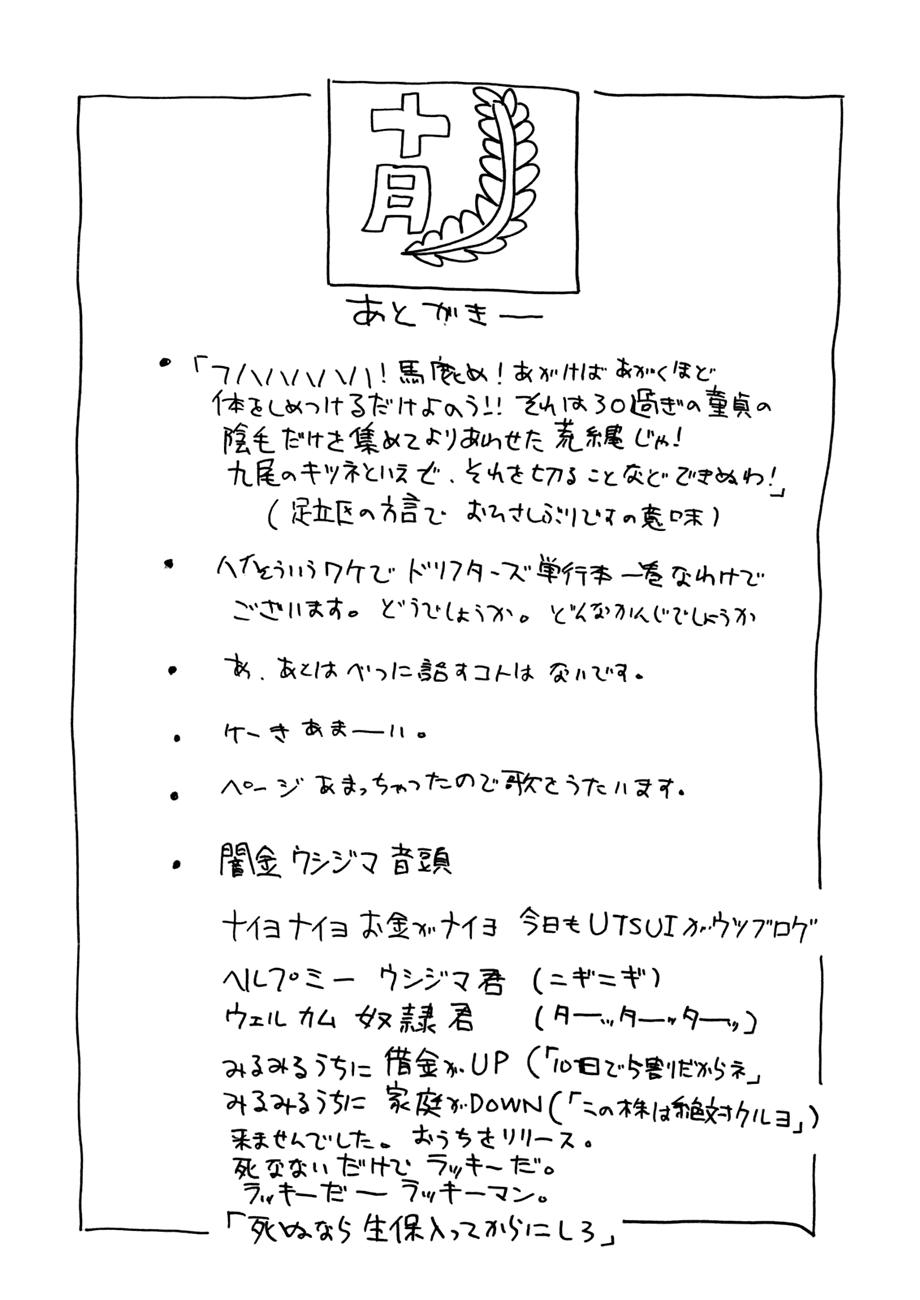 十月
あとがき―
・「フハハハハハ！馬鹿め！あがけばあがくほど
体をしめつけるだけよのう!! それは30過ぎの童貞の
陰毛だけを集めてよりあわせた荒縄じゃ！
九尾のキツネといえど、それを切ることなどできぬわ！」
(足立区の方言で おひさしぶりですの意味)
・ハイそういうワケでドリフターズ単行本一巻なわけで
ございます。どうでしょうか。どんなかんじでしょうか
・あ、あとはべつに話すコトはないです。
・ケーきあま――い。
・ページあまっちゃったので歌をうたいます。
・闇金ウシジマ音頭
ナイヨナイヨお金がナイヨ 今日もUTSUIがウツブログ
ヘルプミー ウシジマ君 (ニギニギ)
ウェルカム 奴隷君 (ターッターッターッ)
みるみるうちに 借金がUP (「10日で5割だからネ」
みるみるうちに 家庭がDOWN (「この株は絶対クルヨ」)
来ませんでした。おうちをリリース。
死なないだけでラッキーだ。
ラッキーだ―ラッキーマン。
「死ぬなら生保入ってからにしろ」